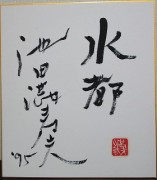 水都
池田満寿夫
'95